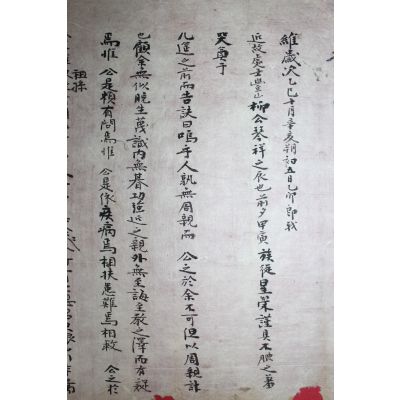 維歲次乙巳十月辛亥朔初五日乙卯卽我
近故處士山柳公琴祥之辰也前夕甲寅族從星榮謹具不腆之羞
哭奠于
几筵之前而告訣曰嗚乎人孰無周親而 公之於余不可但以周親計
也顧余無似晩生蔑識內無朞功强近之親外無至誨至敎之澤而有疑
焉惟 公是賴有問焉惟 公是依疾病焉相扶患難焉相救 公之於
祖孫